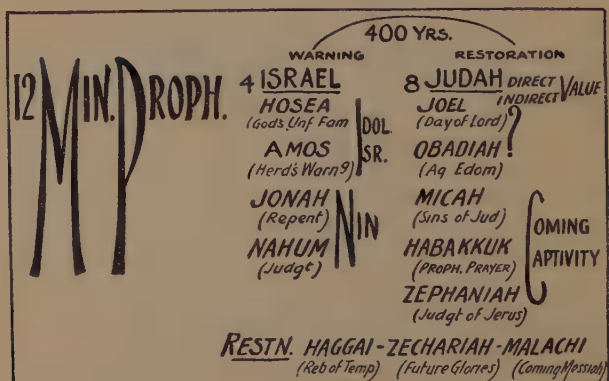 400 YRS.
WARNING RESTORATION
12 MIN. PROPH.
4 ISRAEL
HOSEA
(Gods Unf Fam
AMOS
(Herd's Warng)
IDOL.
ISR.
JONAH
(Repent)
NAHUM
(Judgt)
NIN
8 JUDAH DIRECT INDIRECT VALUE
JOEL
(Day of Lord)
OBADIAH
(Ag Edom)
?
MICAH
(Sins of Jud)
HABAKKUK
(PROPH. PRAYER)
ZEPHANIAH
(Judgt of Jerus)
COMING
CAPTIVITY
RESTN. HAGGAI - ZECHARIAH - MALACHI
(Reb of Temp) (Future Glories) (Coming Messiah)